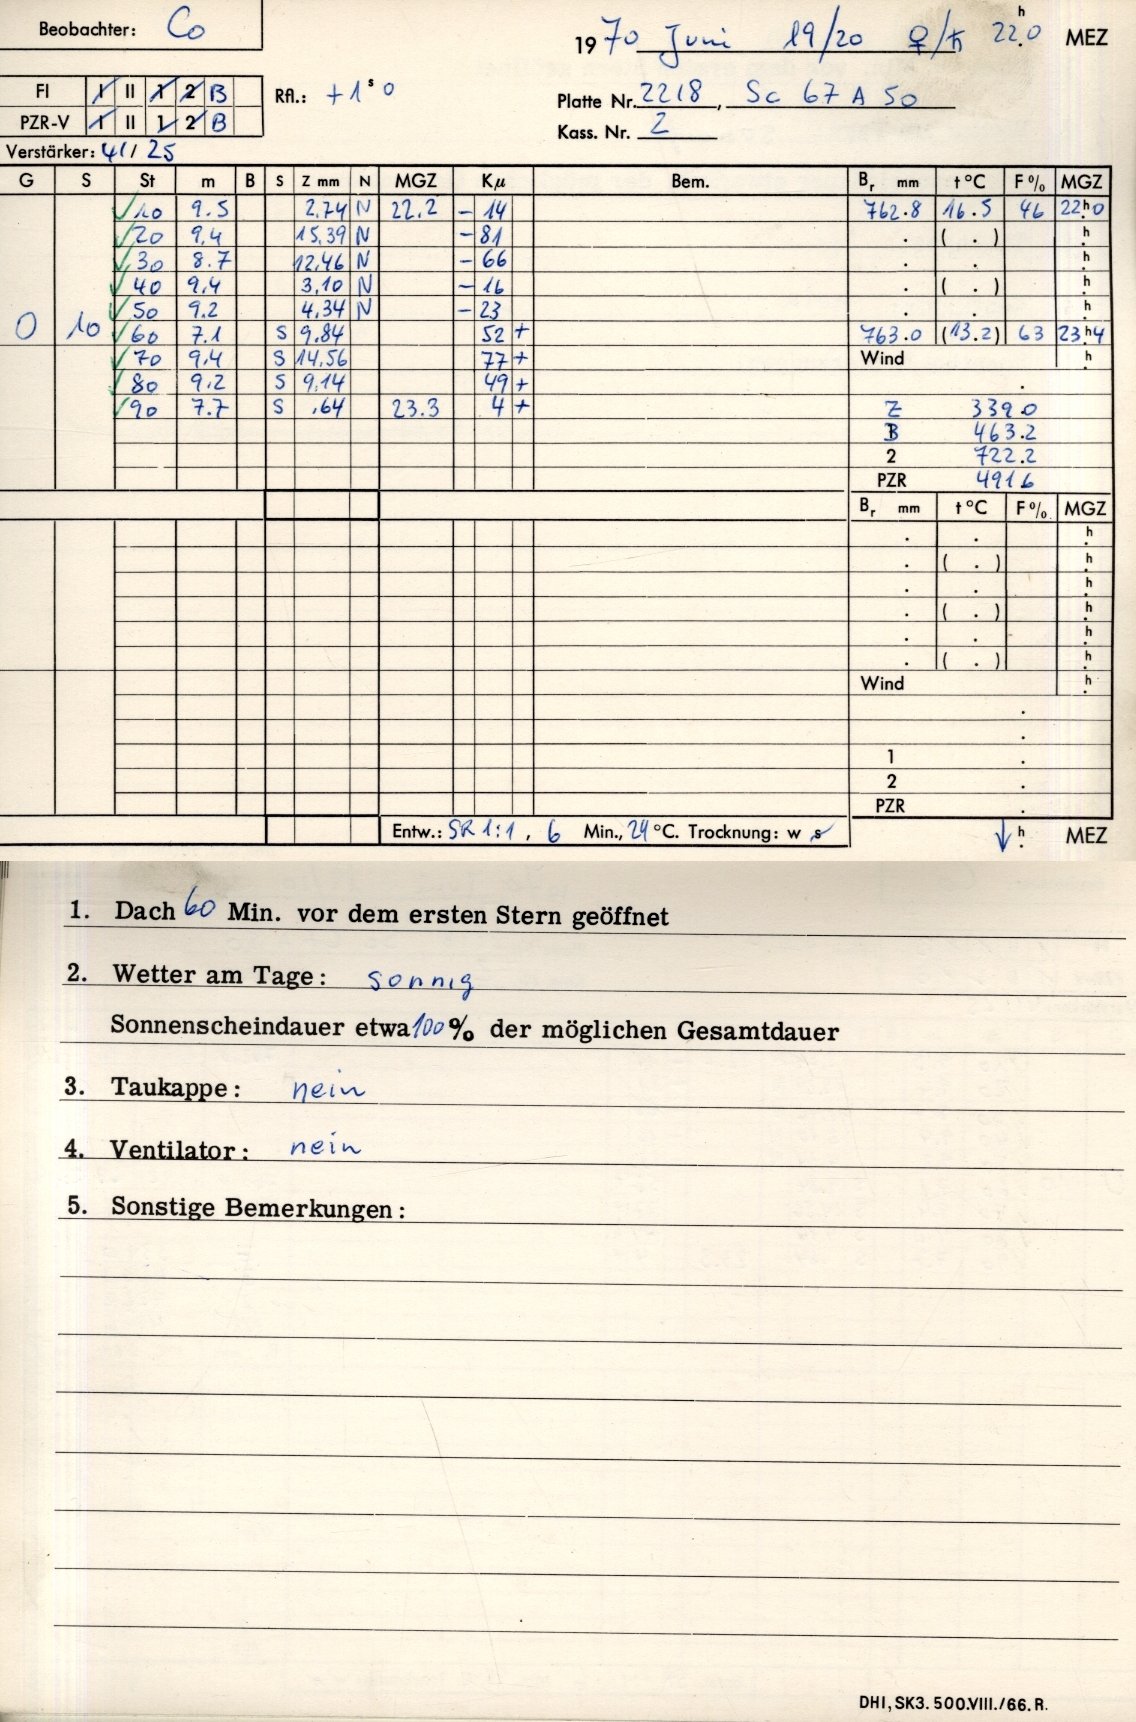 Beobachter: Co
1970 Juni 19/20 ♀/♄ 22.h0 MEZ
FI I II 1 2 B Rfl.: +1s0
Platte Nr. 2218, Sc 67 A 50
PZR-V I II 1 2 B
Kass. Nr. 2
Verstärker: 41/25
G S St m B S Z mm N MGZ Kμ Bem. Br mm t °C F % MGZ
✓10 9.5 2,74 N 22.2 - 14 762.8 16.5 46 22.h0
✓20 9,4 15,39 N - 81 . ( . ) h
✓30 8.7 12,46 N - 66 . . h
✓40 9,4 3,10 N - 16 . ( . ) h
✓50 9.2 4,34 N - 23 . . h
0 10 ✓60 7.1 S 9,84 52 + 763.0 (13.2) 63 23.h4
✓70 9,4 S 14,56 77 + Wind h
✓80 9,2 S 9,14 49 + .
✓90 7.7 S ,64 23.3 4 + Z 339.0
B 463.2
2 722.2
PZR 491 6
Br mm t °C F % MGZ
. . h
. ( . ) h
. . h
. ( . ) h
. . h
. ( . ) h
Wind h
.
.
1 .
2 .
PZR .
Entw.: SR 1:1, 6 Min., 24 °C. Trocknung: w s ↓ h MEZ
1. Dach 60 Min. vor dem ersten Stern geöffnet
2. Wetter am Tage: sonnig
Sonnenscheindauer etwa 100 % der möglichen Gesamtdauer
3. Taukappe: nein
4. Ventilator: nein
5. Sonstige Bemerkungen:
DHI, SK3. 500.VIII./66. R.